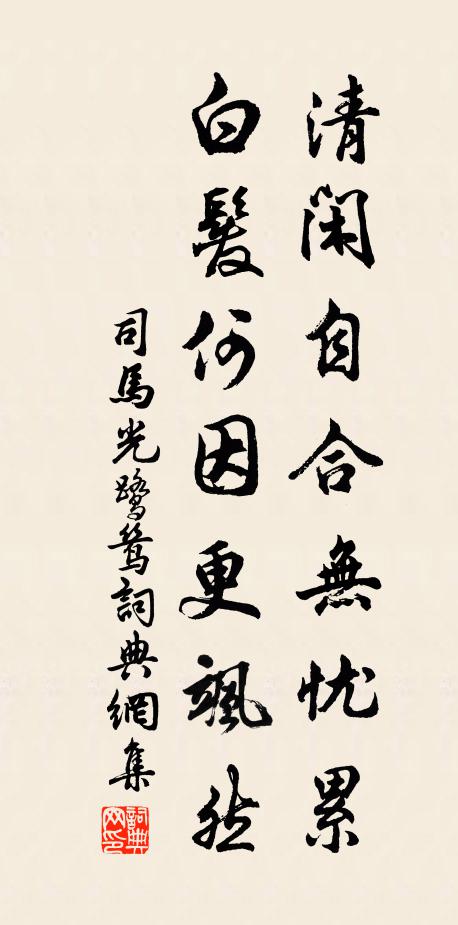 清閑自合無忧累
白髮何因更颯然
司馬光鷺鷥詞典網集
詞典网印